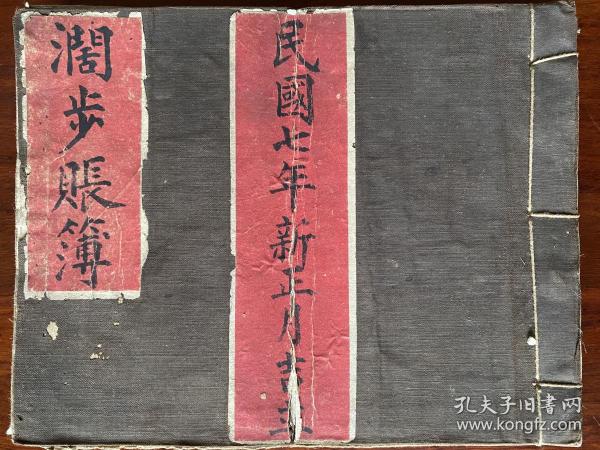 民國七年新正月吉立
濶步賬簿
孔夫子旧书网
www.kongfz.com